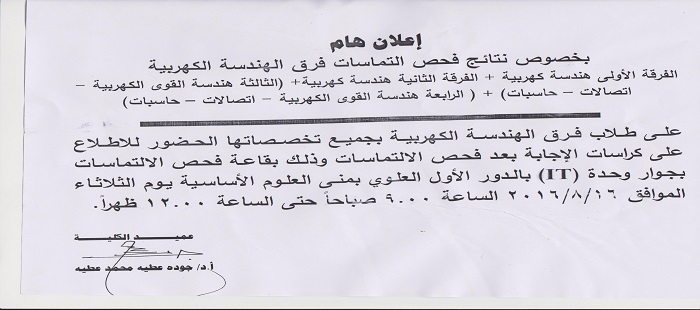 إعلان هام
بخصوص نتائج فحص التماسات فرق الهندسة الكهربية
الفرقة الأولى هندسة كهربية + الفرقة الثانية هندسة كهربية+ (الثالثة هندسة القوى الكهربية –
اتصالات – حاسبات) + ( الرابعة هندسة القوى الكهربية – اتصالات – حاسبات)
على طلاب فرق الهندسة الكهربية بجميع تخصصاتها الحضور للاطلاع
على كراسات الإجابة بعد فحص الالتماسات وذلك بقاعة فحص الالتماسات
بجوار وحدة (IT) بالدور الأول العلوي بمنى العلوم الأساسية يوم الثلاثاء
الموافق ٢٠١٦/٨/١٦ الساعة ٩.٠٠ صباحاً حتى الساعة ١٢.٠٠ ظهراً.
عميد الكلية
أ.د/ جوده عطيه محمد عطيه